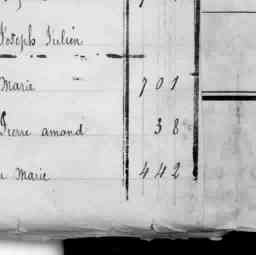 Joseph Julien
Marie 701
Pierre amand 38
Marie 442